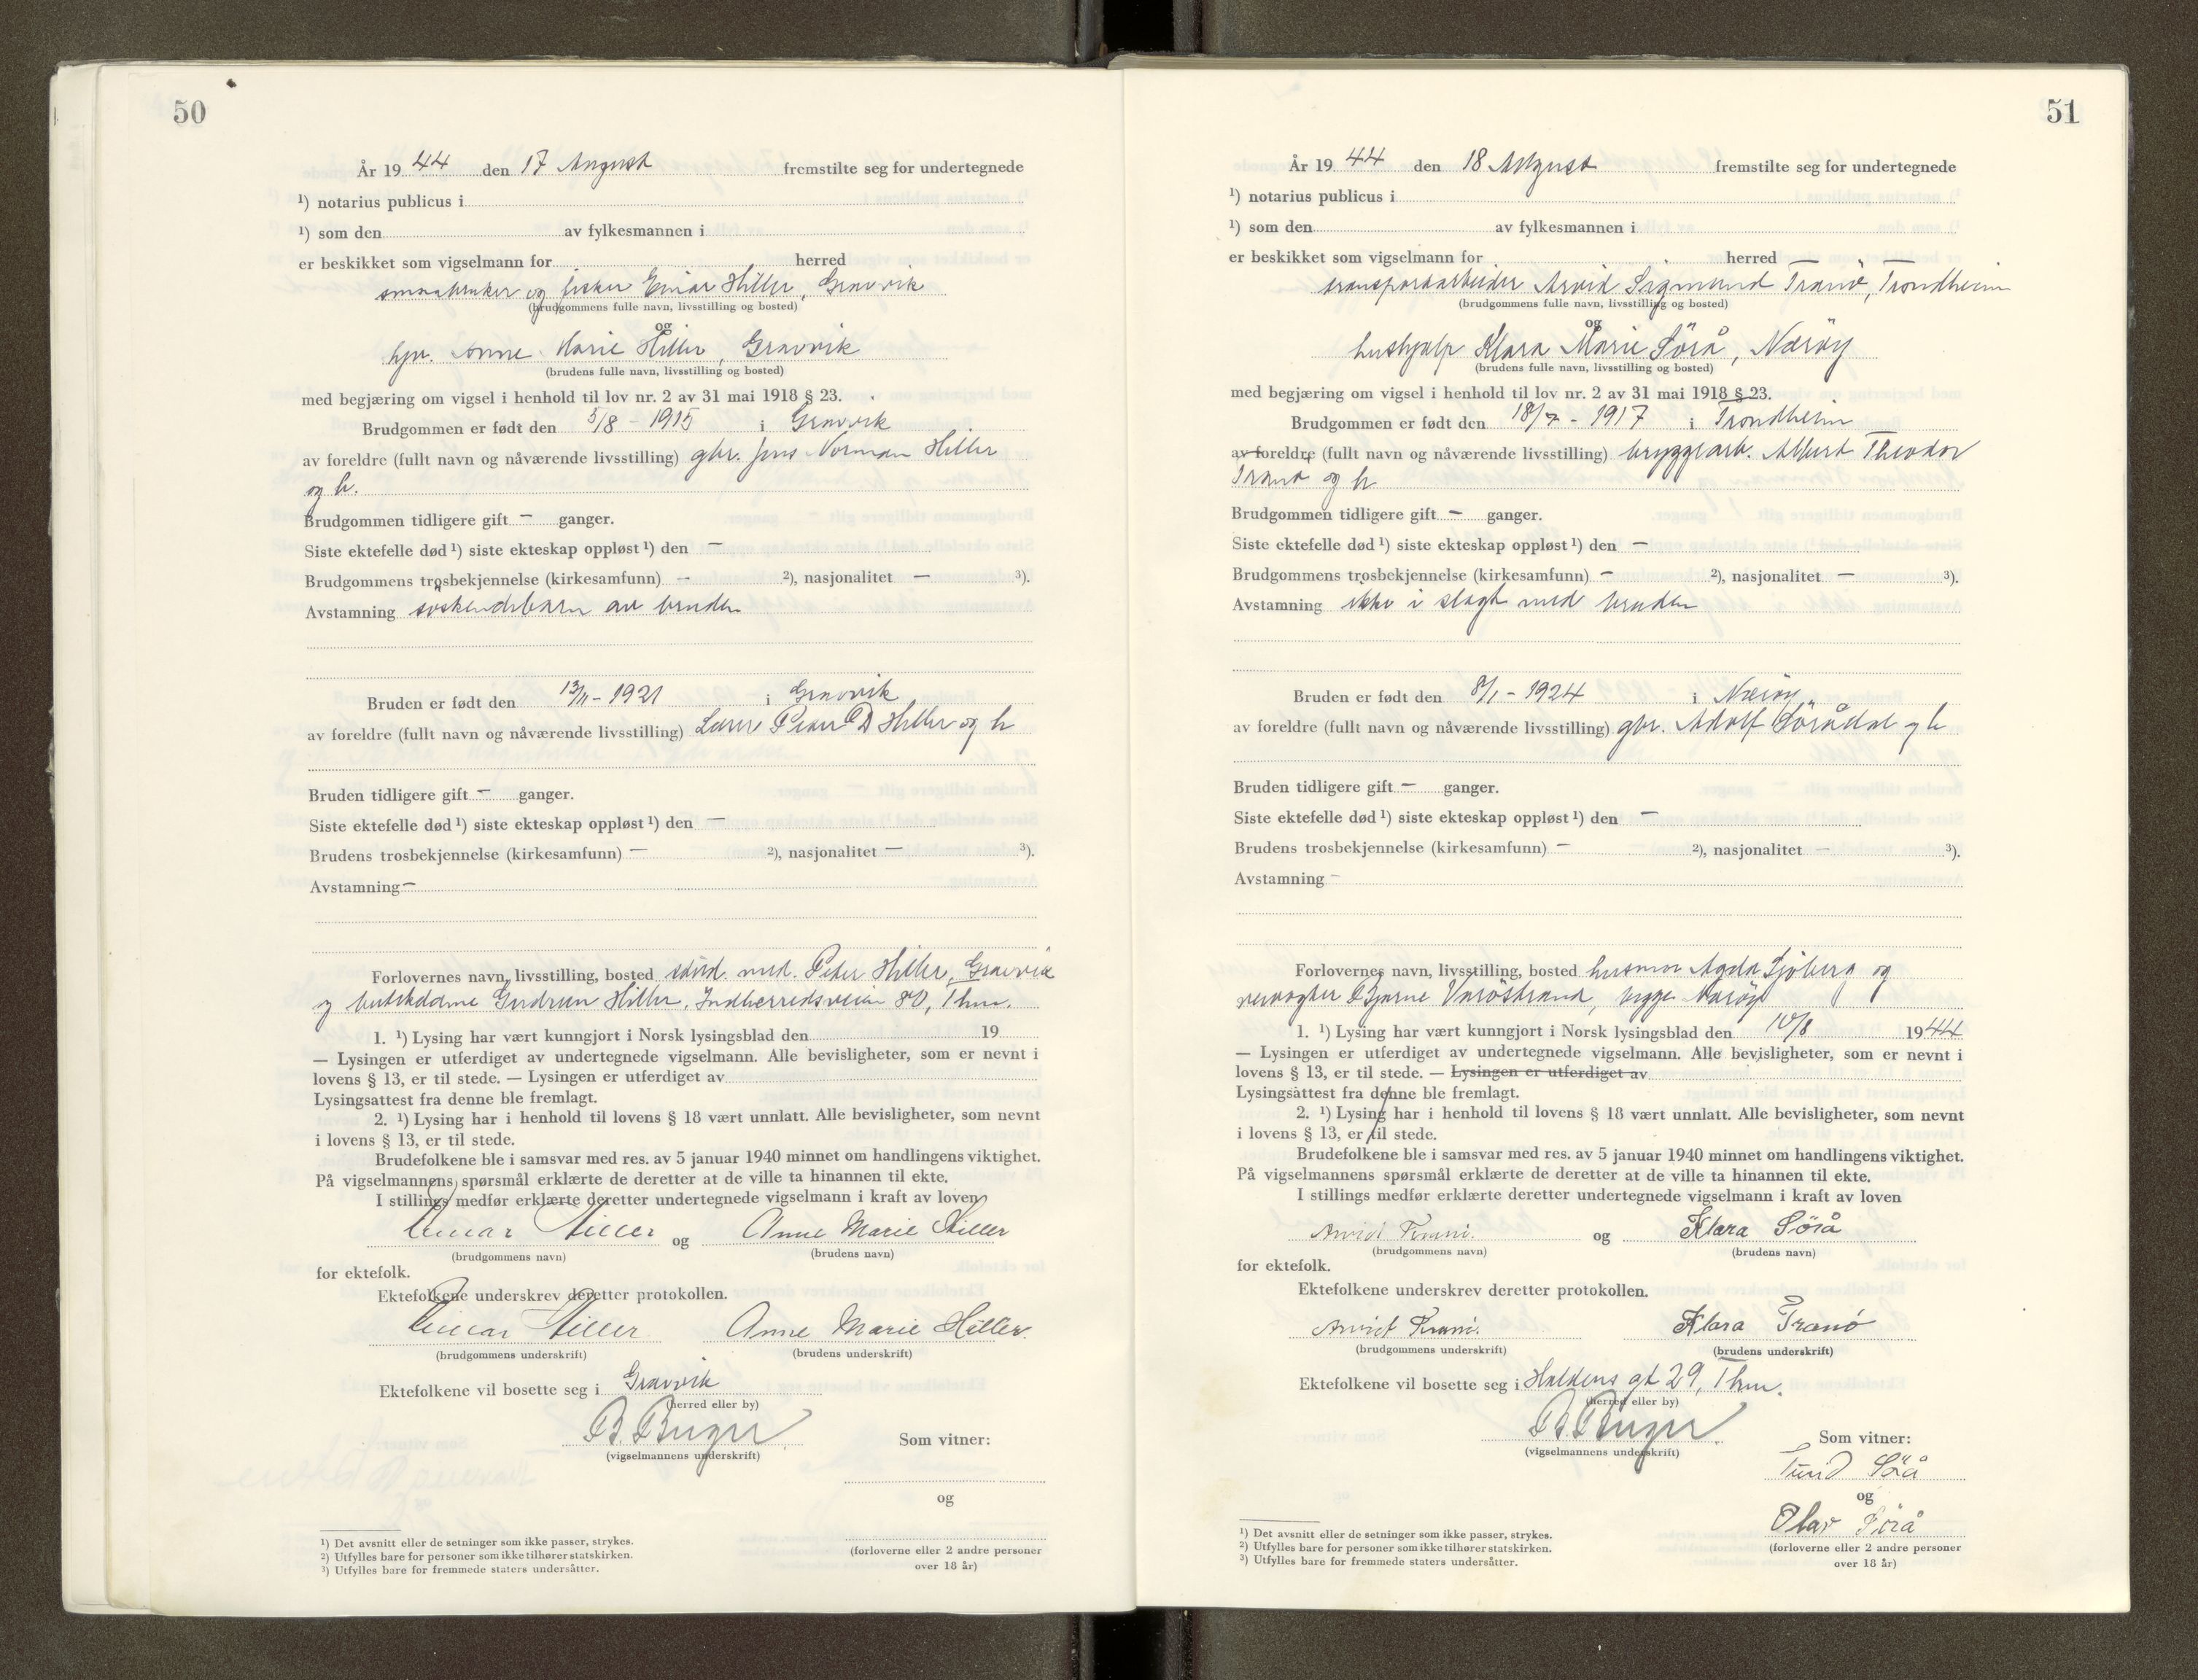 50
År 1944 den 17 August fremstilte seg for undertegnede
¹) notarius publicus i
¹) som den av fylkesmannen i
er beskikket som vigselmann for herred
smaabruker og fisker Einar Hiller, Gravvik
(brudgommens fulle navn, livsstilling og bosted)
og
hjv. Anne Marie Hiller, Gravvik
(brudens fulle navn, livsstilling og bosted)
med begjæring om vigsel i henhold til lov nr. 2 av 31 mai 1918 § 23.
Brudgommen er født den 5/8 - 1915 i Gravvik
av foreldre (fullt navn og nåværende livsstilling) gbr. Jens Norman Hiller
og h.
Brudgommen tidligere gift — ganger.
Siste ektefelle død ¹) siste ekteskap oppløst ¹) den —
Brudgommens trosbekjennelse (kirkesamfunn) — ²), nasjonalitet — ³).
Avstamning söskendebarn av bruden
Bruden er født den 13/11 - 1921 i Gravvik
av foreldre (fullt navn og nåværende livsstilling) Lærer Peter D Hiller og h
Bruden tidligere gift — ganger.
Siste ektefelle død ¹) siste ekteskap oppløst ¹) den —
Brudens trosbekjennelse (kirkesamfunn) — ²), nasjonalitet — ³).
Avstamning —
Forlovernes navn, livsstilling, bosted stud. med. Peter Hiller, Gravvik
og butikkdame Gudrun Hiller, Indherredsveien 80, Thm.
1. ¹) Lysing har vært kunngjort i Norsk lysingsblad den 19
— Lysingen er utferdiget av undertegnede vigselmann. Alle bevisligheter, som er nevnt i
lovens § 13, er til stede. — Lysingen er utferdiget av
Lysingsattest fra denne ble fremlagt.
2. ¹) Lysing har i henhold til lovens § 18 vært unnlatt. Alle bevisligheter, som nevnt
i lovens § 13, er til stede.
Brudefolkene ble i samsvar med res. av 5 januar 1940 minnet om handlingens viktighet.
På vigselmannens spørsmål erklærte de deretter at de ville ta hinannen til ekte.
I stillings medfør erklærte deretter undertegnede vigselmann i kraft av loven
Einar Hiller og Anne Marie Hiller
(brudgommens navn) (brudens navn)
for ektefolk.
Ektefolkene underskrev deretter protokollen.
Einar Hiller Anne Marie Hiller
(brudgommens underskrift) (brudens underskrift)
Ektefolkene vil bosette seg i Gravvik
(herred eller by)
(vigselmannens underskrift)
Som vitner:
og
(forloverne eller 2 andre personer
over 18 år)
¹) Det avsnitt eller de setninger som ikke passer, strykes.
²) Utfylles bare for personer som ikke tilhører statskirken.
³) Utfylles bare for fremmede staters undersåtter.
51
År 1944 den 18 August fremstilte seg for undertegnede
¹) notarius publicus i
¹) som den av fylkesmannen i
er beskikket som vigselmann for herred
transportarbeider Arvid Sigmund Tranö, Trondheim
(brudgommens fulle navn, livsstilling og bosted)
og
hushjelp Klara Marie Sörå, Næröy
(brudens fulle navn, livsstilling og bosted)
med begjæring om vigsel i henhold til lov nr. 2 av 31 mai 1918 § 23.
Brudgommen er født den 18/7 - 1917 i Trondheim
av foreldre (fullt navn og nåværende livsstilling) bryggearb. Albert Theodor
Tranö og h
Brudgommen tidligere gift — ganger.
Siste ektefelle død ¹) siste ekteskap oppløst ¹) den —
Brudgommens trosbekjennelse (kirkesamfunn) — ²), nasjonalitet — ³).
Avstamning ikke i slegt med bruden
Bruden er født den 8/1 - 1924 i Næröy
av foreldre (fullt navn og nåværende livsstilling) gbr. Adolf Sörådal og h
Bruden tidligere gift — ganger.
Siste ektefelle død ¹) siste ekteskap oppløst ¹) den —
Brudens trosbekjennelse (kirkesamfunn) — ²), nasjonalitet — ³).
Avstamning —
Forlovernes navn, livsstilling, bosted husmor Agda Sjöberg og
Bjarne Varöstrand, begge Næröy
1. ¹) Lysing har vært kunngjort i Norsk lysingsblad den 10/8 1944
— Lysingen er utferdiget av undertegnede vigselmann. Alle bevisligheter, som er nevnt i
lovens § 13, er til stede. — Lysingen er utferdiget av
Lysingsattest fra denne ble fremlagt.
2. ¹) Lysing har i henhold til lovens § 18 vært unnlatt. Alle bevisligheter, som nevnt
i lovens § 13, er til stede.
Brudefolkene ble i samsvar med res. av 5 januar 1940 minnet om handlingens viktighet.
På vigselmannens spørsmål erklærte de deretter at de ville ta hinannen til ekte.
I stillings medfør erklærte deretter undertegnede vigselmann i kraft av loven
Arvid Tranö og Klara Sörå
(brudgommens navn) (brudens navn)
for ektefolk.
Ektefolkene underskrev deretter protokollen.
Arvid Tranö Klara Tranö
(brudgommens underskrift) (brudens underskrift)
Ektefolkene vil bosette seg i Haldens gt 29, Thm.
(herred eller by)
(vigselmannens underskrift)
Som vitner:
Turid Sörå
og
Olav Sörå
(forloverne eller 2 andre personer
over 18 år)
¹) Det avsnitt eller de setninger som ikke passer, strykes.
²) Utfylles bare for personer som ikke tilhører statskirken.
³) Utfylles bare for fremmede staters undersåtter.